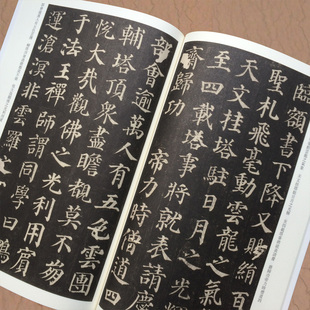 臨額書下降又賜絹百
聖札飛毫動雲龍之氣
天文挂塔駐日月之光輝
至四載塔事將就表請慶
齋歸功帝力時僧道四
部會逾萬人有五色雲團
輔塔頂衆盡瞻覩莫不崩
悅大哉觀佛之光利用賓
于法王禪師謂同學曰鵬
運滄溟非雲羅